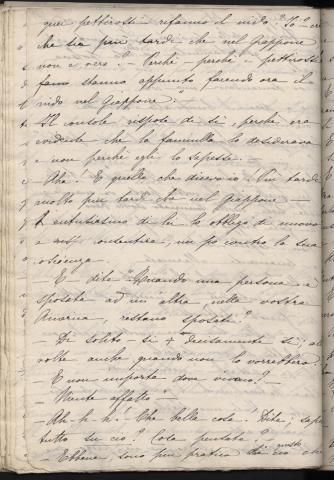 quei pettirossi rifanno il nido? Io
che sia più tardi che nel Giappone
non è vero? - Perchè - perchè i pettirossi
fanno stanno appunto facendo ora il
nido nel Giappone".
Il console rispose di sì, perchè era
evidente che la fanciulla lo desiderava
e non perchè egli lo sapesse.
- Aha! È quello che dicevo io. Più tardi
molto più tardi che nel Giappone -
L'entusiasmo di lei lo obbligò di nuovo
a consentire, un po contro la sua
coscienza.
- E dite "Quando una persona è
sposata ad un altra, nella vostra
America, restano sposati?"
- Di solito - sì + decisamente sì; al
volte anche quando non lo vorrebbero.
- E non importa dove vivano? -
- Niente affatto -
- Ah-h-h! Che bella cosa! Dite, sape
tutto su ciò? Cosa pensate?
- Ebbene, sono più pratica di ciò che